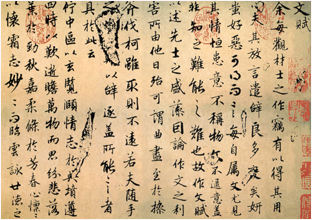 文賦
余每觀材士之作竊有以得其用
心夫其放言遣辭良多變矣妍
蚩好惡可得而言每自屬文尤見
其情恒患意不稱物文不逮意蓋
非知之難能之難也故作文賦
以述先士之盛藻因論作文之利
害所由他日殆可謂曲盡至於操
斧伐柯雖取則不遠若夫隨手
以辭逮蓋所能者
具於此云
佇中區以玄覽頤情志於典墳遵
四時以歎逝瞻萬物而思紛悲落
葉於勁秋嘉柔條於芳春懍
以懷霜志眇々而臨雲詠世德之